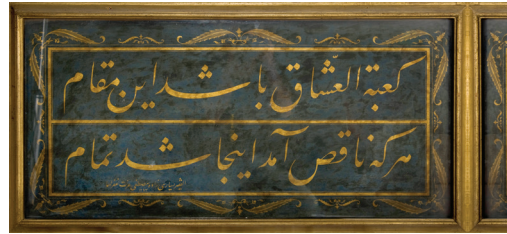 کعبة العشاق باشد این مقام
هرکه ناقص آمد اینجا شد تمام